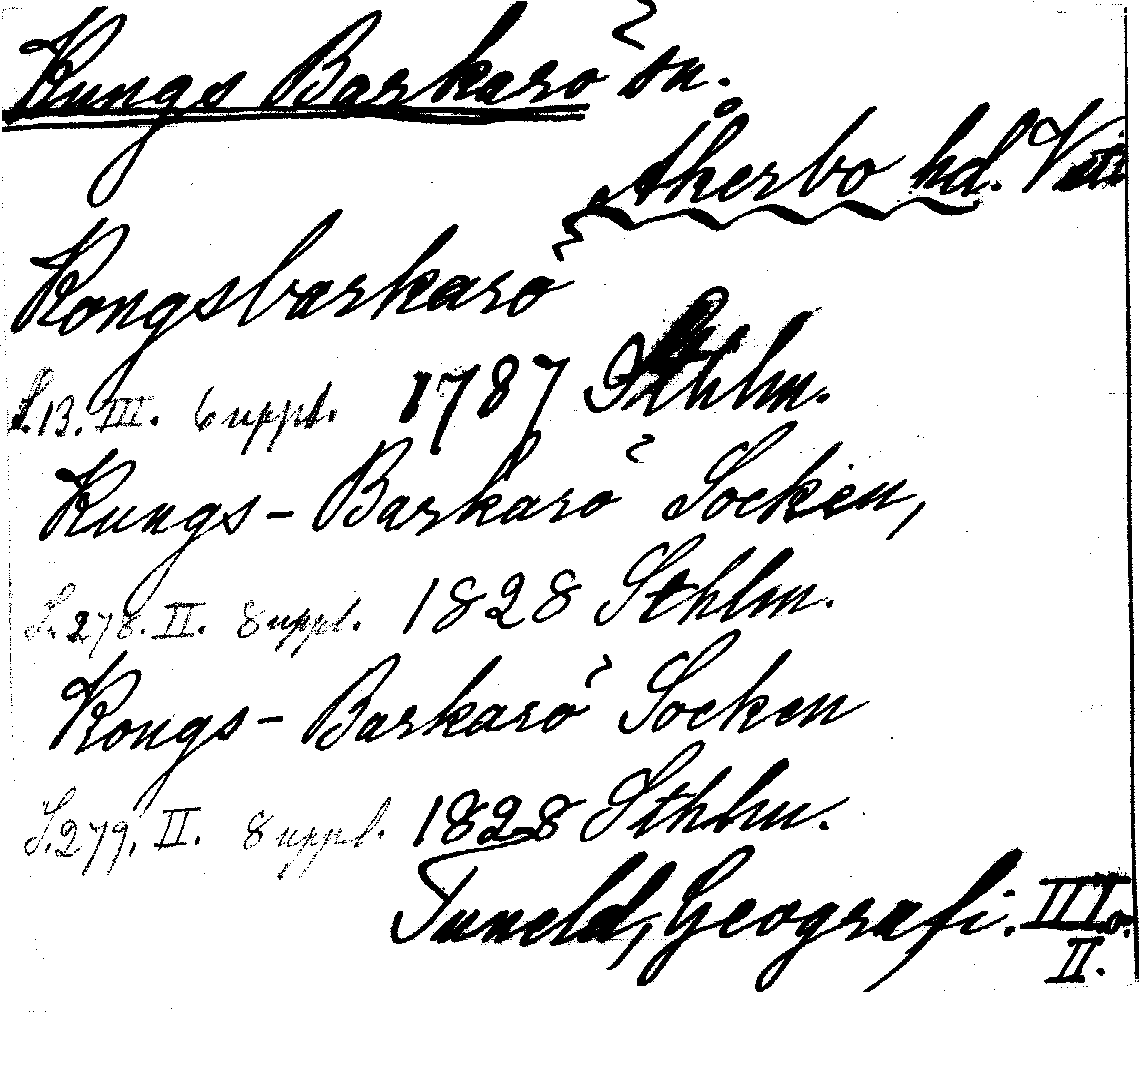 Kungs Barkarö sn.
Åkerbo hd. Vstm
Kongsbarkarö
S.13. III. 6 uppl. 1787 Sthlm.
Kungs-Barkarö Socken,
S.278. II. 8 uppl. 1828 Sthlm.
Kongs-Barkarö Socken
S.279. II. 8 uppl. 1828 Sthlm.
Tuneld, Geografi. III o.
II.